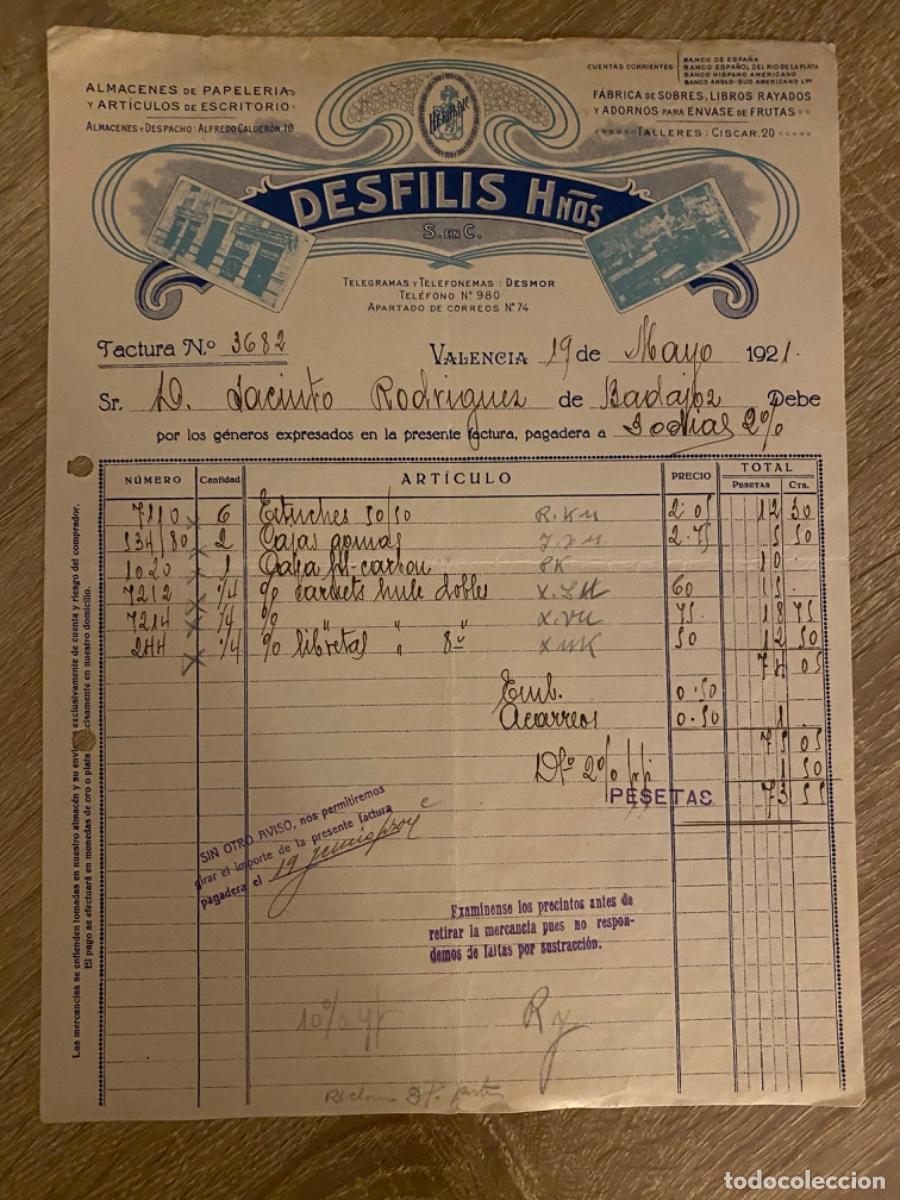 ALMACENES DE PAPELERIA
Y ARTÍCULOS DE ESCRITORIO
ALMACENES Y DESPACHO: ALFREDO CALDERÓN, 10
CUENTAS CORRIENTES
BANCO DE ESPAÑA
BANCO ESPAÑOL DEL RIO DE LA PLATA
BANCO HISPANO AMERICANO
BANCO ANGLO-SUD AMERICANO Lᵀᴰ
FÁBRICA DE SOBRES, LIBROS RAYADOS
Y ADORNOS PARA ENVASE DE FRUTAS
TALLERES: CISCAR, 20
DESFILIS Hnos
S. EN C.
TELEGRAMAS Y TELEFONEMAS: DESMOR
TELÉFONO Nº 980
APARTADO DE CORREOS Nº 74
Factura N.º 3682
VALENCIA 19 de Mayo 1921.
Sr. D. Jacinto Rodriguez de Badajoz Debe
por los géneros expresados en la presente factura, pagadera a 30 dias 2%
NÚMERO Cantidad ARTÍCULO PRECIO TOTAL
PESETAS CTS.
7110 6 Estuches 50/50 2.05 12 30
534/80 2 Cajas gomas 2.75 5 50
1020 1 Caja pl-carbon 10
7212 1/4 % carnets hule dobles 60 15
7214 1/4 % " " 75 18 75
244 1/4 % libretas " 8º 50 12 50
74 05
Emb. 0.50
Acarreos 0.50 1
75 05
Dto 2% p/p 1 50
PESETAS 73 55
SIN OTRO AVISO, nos permitiremos
girar el importe de la presente factura
pagadera el 19 junio
Examínense los precintos antes de
retirar la mercancía pues no respon-
demos de faltas por sustracción.
10%
Las mercancías se entienden tomadas en nuestro almacén y su envío exclusivamente de cuenta y riesgo del comprador.
El pago se efectuará en monedas de oro o plata precisamente en nuestro domicilio.
todocoleccion